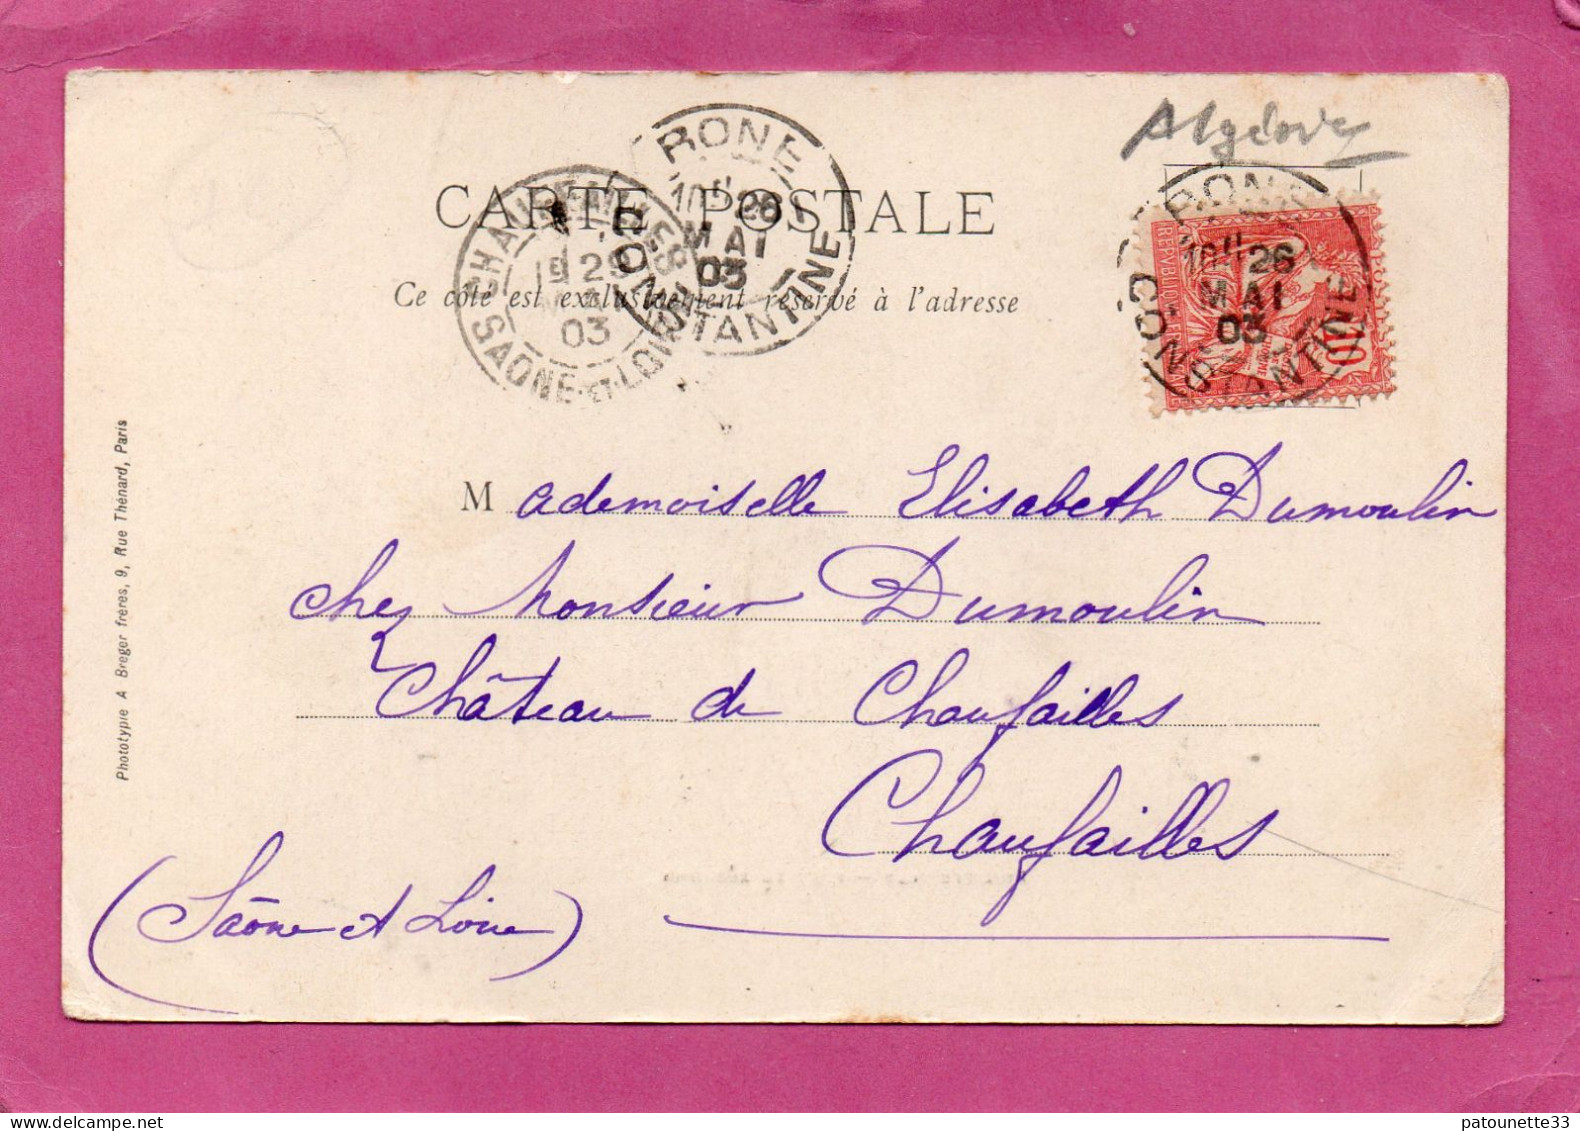 Algérie
CARTE POSTALE
Ce côté est exclusivement réservé à l'adresse
BONE
10H 26
MAI
03
CONSTANTINE
CHAUFFAILLES
29
03
SAONE-ET-LOIRE
BONE
10H 26
MAI
03
CONSTANTINE
10
Mademoiselle Elisabeth Dumoulin
chez Monsieur Dumoulin
Château de Chaufailles
Chaufailles
(Saône et Loire)
Phototypie A Breger frères, 9, Rue Thénard, Paris
patounette33